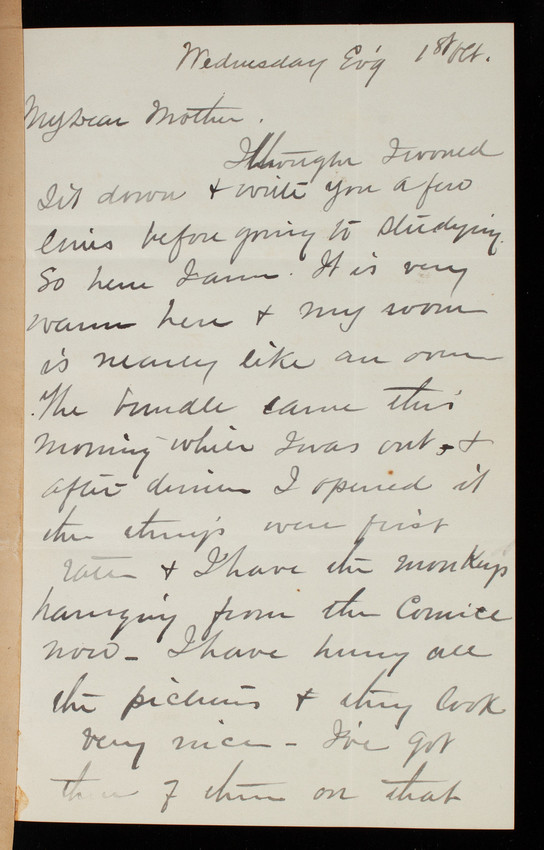 Wednesday Ev'g 1st Oct.
My Dear Mother.
I thought I would
sit down & write you a few
lines before going to studying.
So here I am. It is very
warm here & my room
is nearly like an oven
The bundle came this
morning while I was out, &
after dinner I opened it
the things were first
rate & I have the monkeys
hanging from the Cornice
now - I have hung all
the pictures & they look
very nice - I've got
three of them on that